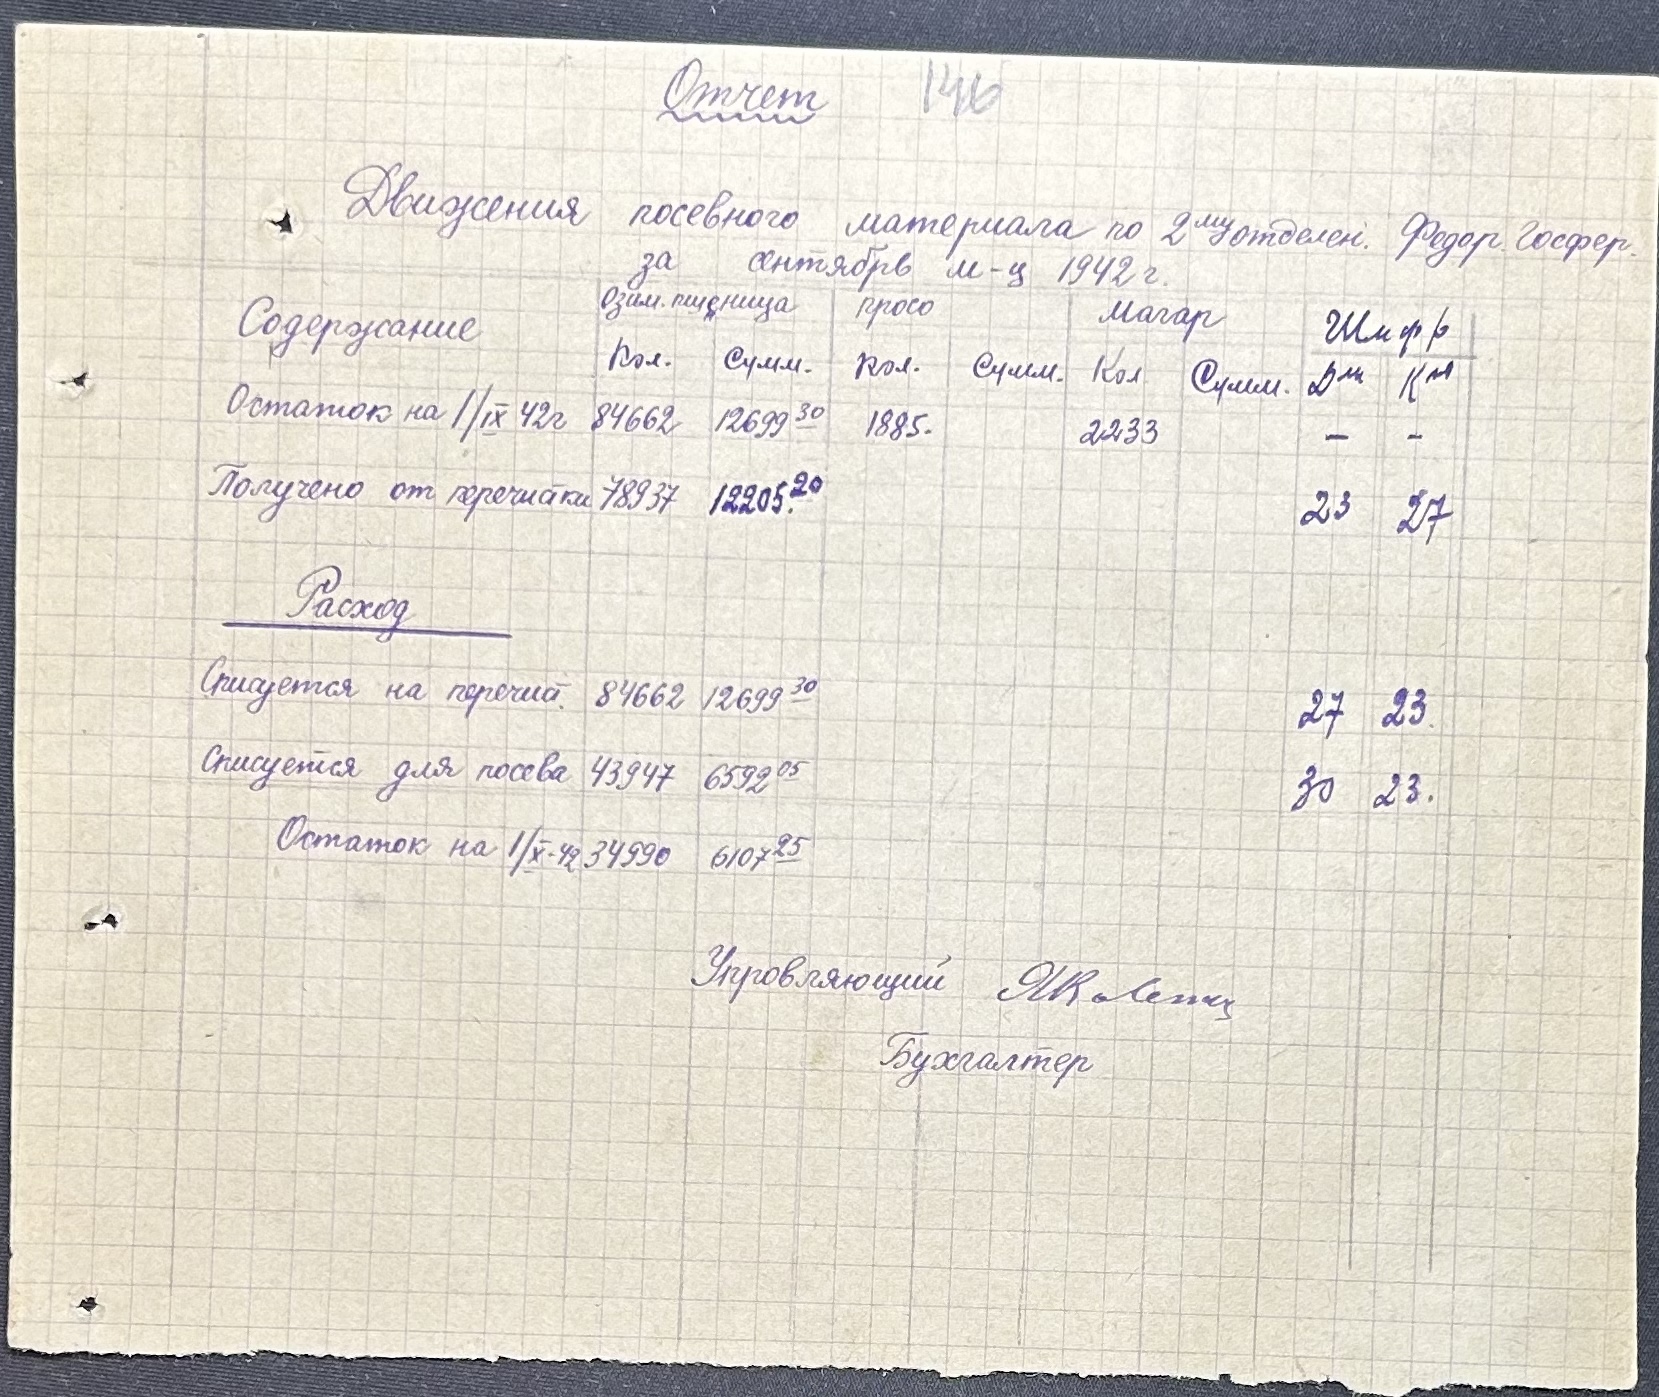 Отчет 146
Движения посевного материала по 2му отделен. Федор. Госфер.
за сентябрь м-ц 1942 г.
Содержание Озим. пшеница просо Магар Шифр
Кол. Сумм. Кол. Сумм. Кол. Сумм. Дт Кт
Остаток на 1/IX 42г 84662 12699 30 1885. 2233 — -
Получено от перечистки 78937 12205. 20 23 27
Расход
Списуется на перечист. 84662 12699 30 27 23.
Списуется для посева 43947 6592 05 30 23.
Остаток на 1/X-42 34990 6107 25
Упровляющий
Бухгалтер